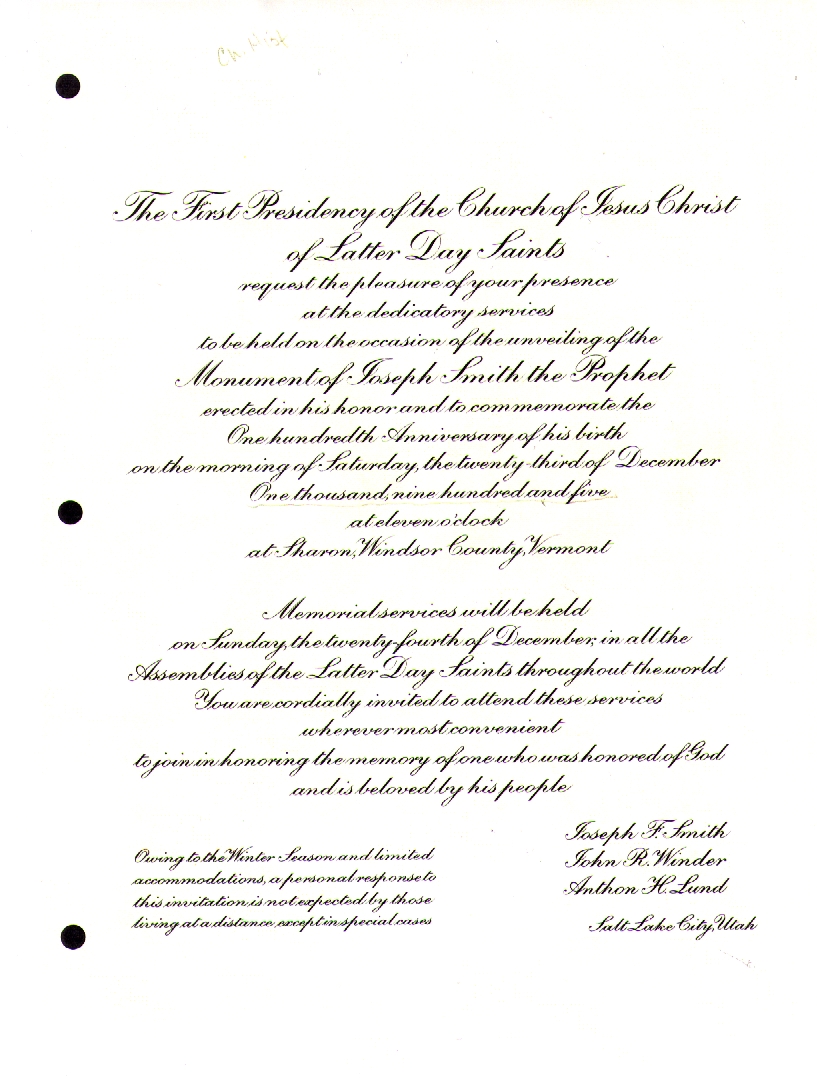 Ch. Hist
The First Presidency of the Church of Jesus Christ
of Latter Day Saints
request the pleasure of your presence
at the dedicatory services
to be held on the occasion of the unveiling of the
Monument of Joseph Smith the Prophet
erected in his honor and to commemorate the
One hundredth Anniversary of his birth
on the morning of Saturday, the twenty-third of December
One thousand, nine hundred and five
at eleven o'clock
at Sharon, Windsor County, Vermont
Memorial services will be held
on Sunday, the twenty-fourth of December, in all the
Assemblies of the Latter Day Saints throughout the world
You are cordially invited to attend these services
wherever most convenient
to join in honoring the memory of one who was honored of God
and is beloved by his people
Joseph F. Smith
John R. Winder
Anthon H. Lund
Salt Lake City, Utah
Owing to the Winter Season and limited
accommodations, a personal response to
this invitation is not expected by those
living at a distance, except in special cases